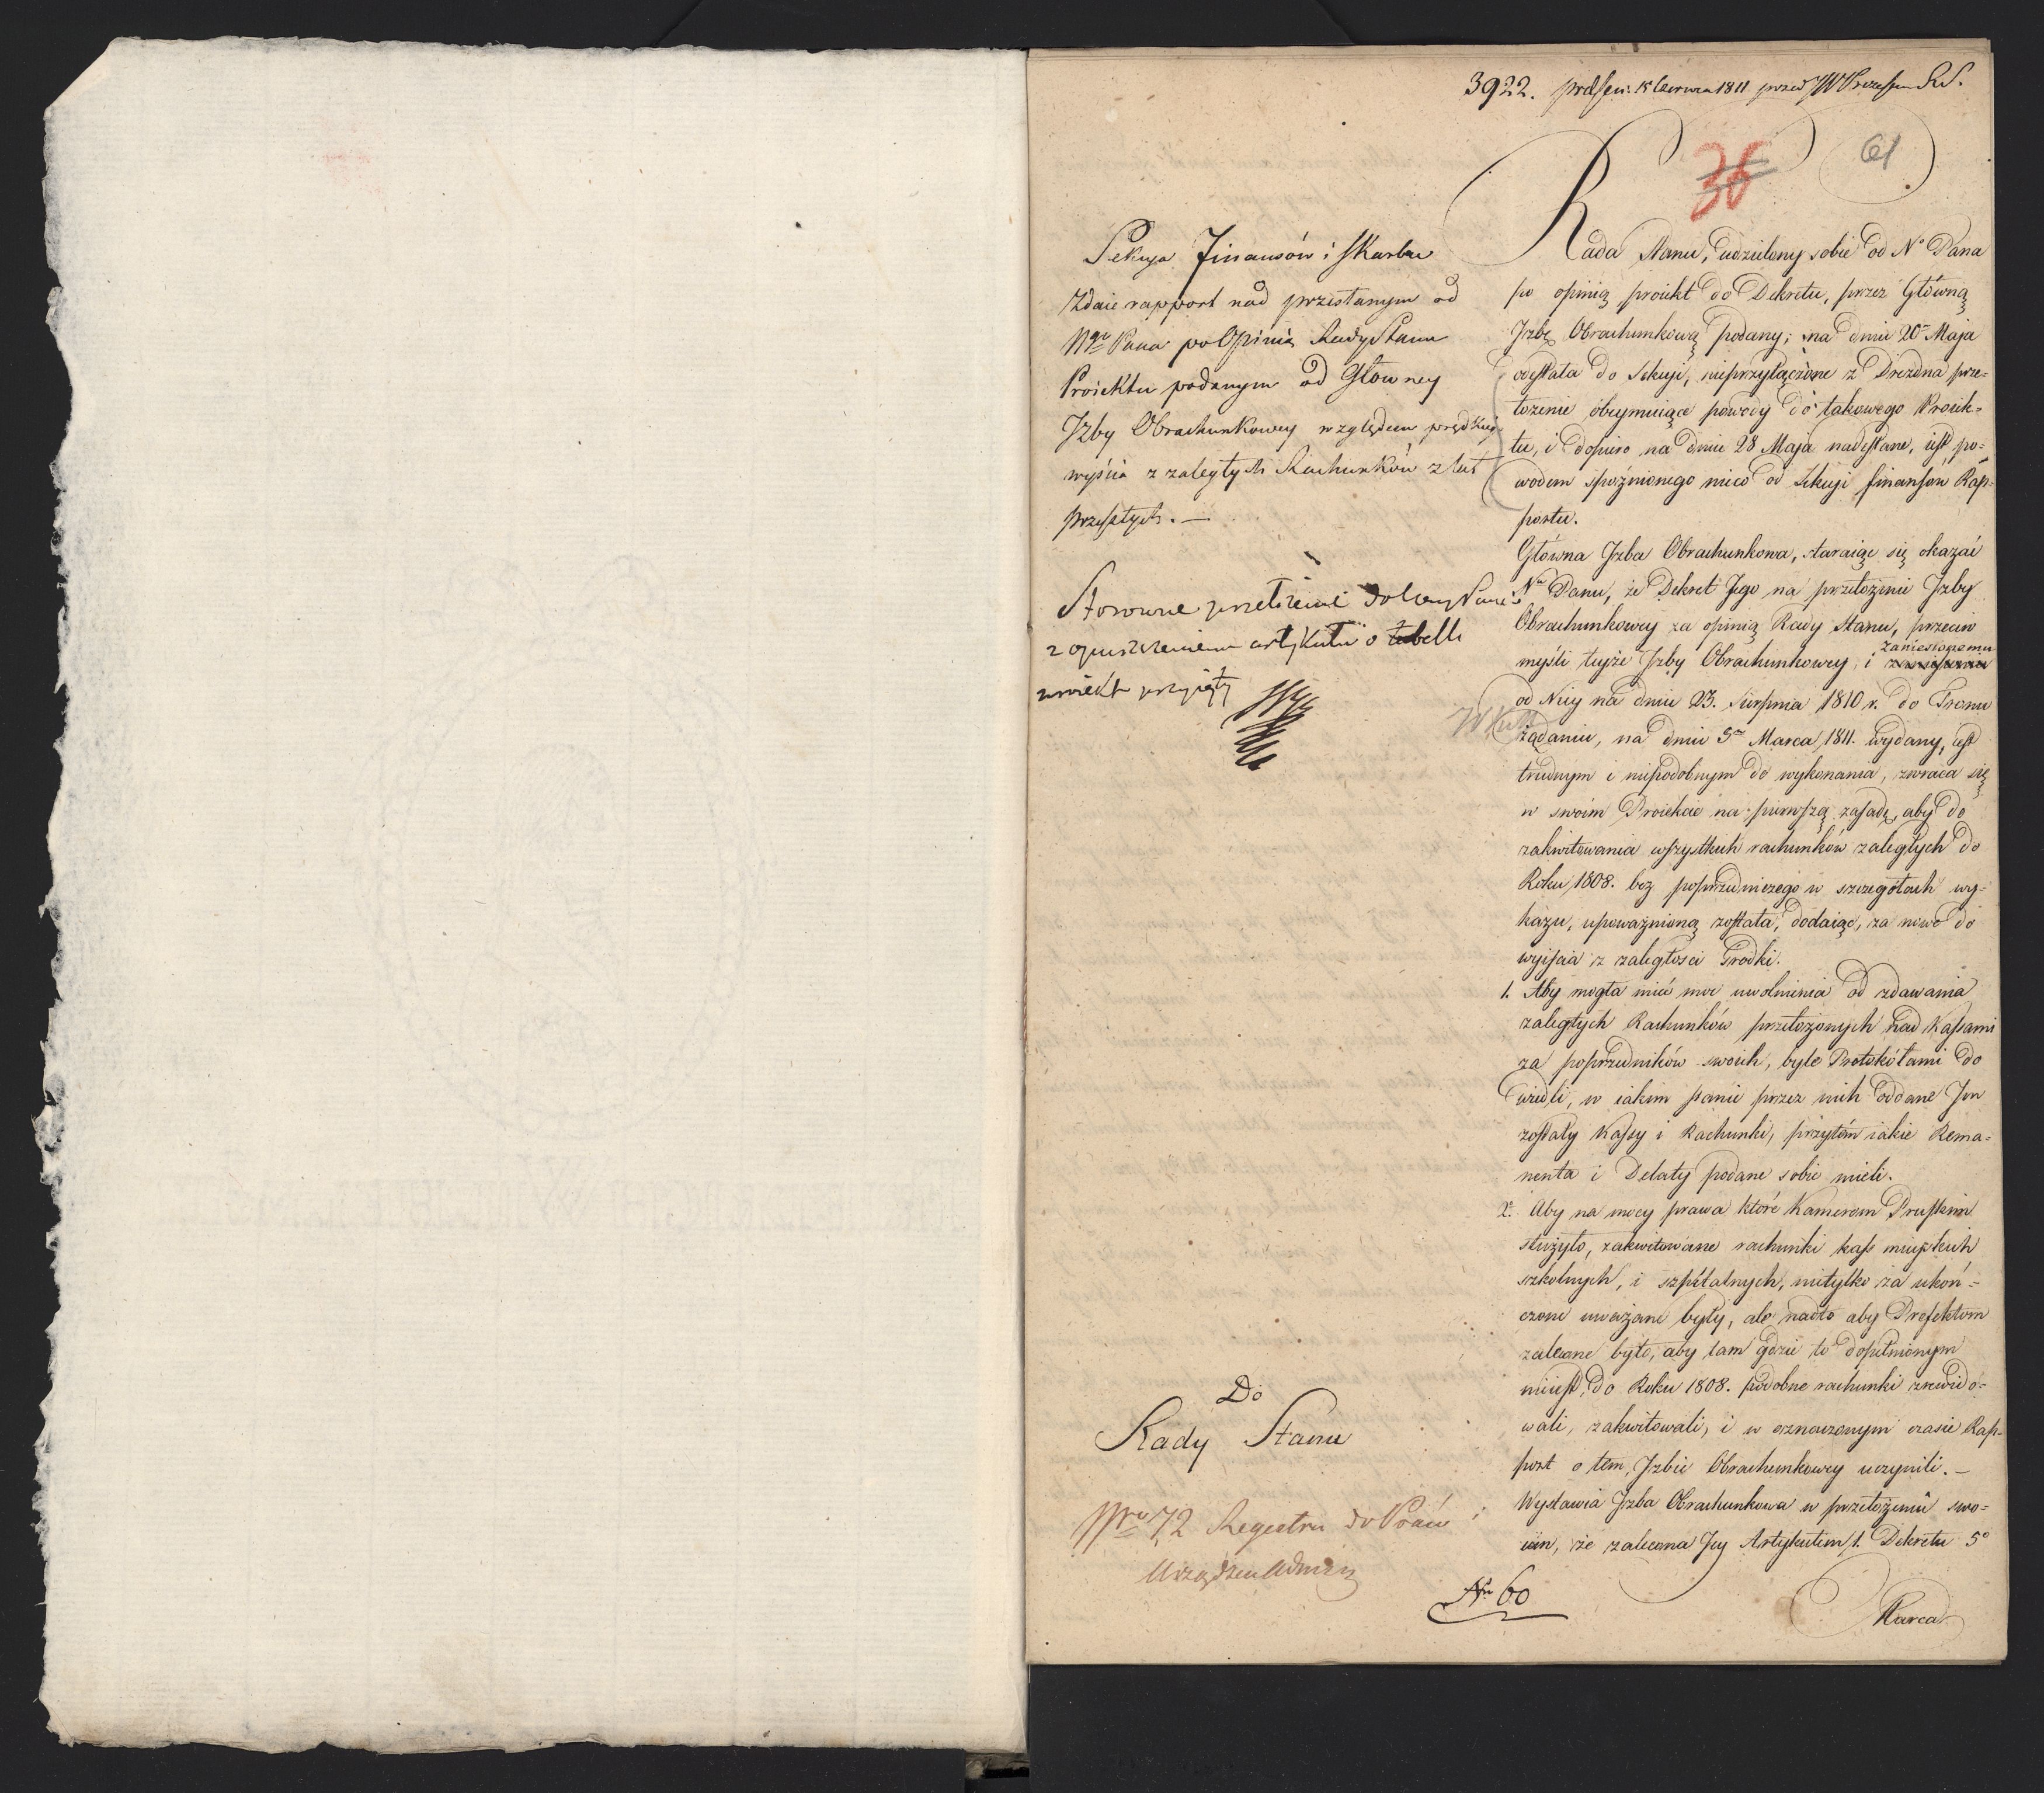 3922. præsen: 15 Czerwca 1811 przed JW Prezesem R.S.
36
61
Sekcya Finansów i Skarbu
Zdaie rapport nad przesłanym od
Ngo Pana po Opinią Rady Stanu
Proiektu podanym od Głowney
Izby Obrachunkowey względem prędkiego
wyiścia z zaległych Rachunków z lat
przeszłych. —
Stosowne przełożenie do
z opuszczeniem artykułu o tabelli
proiekt przyięty
Do
Rady Stanu
Nro 72 Regestru do
Urządzeń Admin
No 60
Rada Stanu, udzielony sobie od No Pana
po opinią proiekt do Dekretu, przez Główną
Jzbę Obrachunkową podany; na dniu 20o Maja
odesłała do Sekcyi, nieprzyłączone z Drezdna prze-
łożenie obeymuiące powody do takowego Proiek-
tu, i dopiero na dniu 28 Maja nadesłane, iest po-
wodem spoźnionego nieco od Sekcyi finansów Rap-
portu.
Główna Jzba Obrachunkowa, staraiąc się okazać
Nu Panu, że Dekret Jego na przełożenie Jzby
Obrachunkowey za opinią Rady Stanu, przeciw
myśli teyże Jzby Obrachunkowey, i zaniesionemu
od Niey na dniu 23. Sierpnia 1810 r. do Tronu
żądaniu, na dniu 5m Marca 1811. wydany, iest
trudnym i niepodobnym do wykonania, zwraca się
w swoim Proiekcie na pierwszą zasadę, aby do
zakwitowania wszystkich rachunków zaległych do
Roku 1808. bez poprzedniczego w szczegołach wy-
kazu, upoważnioną została, dodaiąc, za nowe do
wyiścia z zaległosci Srodki.
1. Aby mogła mieć moc uwolnienia od zdawania
zaległych Rachunków przełożonych nad Kassami
za poprzedników swoich, byle Protokółami do
wiedli, w iakim stanie przez nich oddane Jm
zostały Kassy i Rachunki, przytém iakie Rema-
nenta i Delaty podane sobie mieli.
2. Aby na mocy prawa które Kamerom Pruskim
służyło, zakwitowane rachunki kass mieyskich
szkolnych, i szpitalnych, nietylko za ukoń-
czone uważane były, ale nadto aby Prefektom
zalecone było, aby tam gdzie to dopełnionym
nieiest, do Roku 1808. podobne rachunki zrewido-
wali, zakwitowali, i w oznaczonym czasie Rap-
port o tem, Jzbie Obrachunkowey uczynili. —
Wystawia Jzba Obrachunkowa w przełożeniu swo-
iem, że zalecona Jey Artykułem 1. Dekretu 5o
Marca